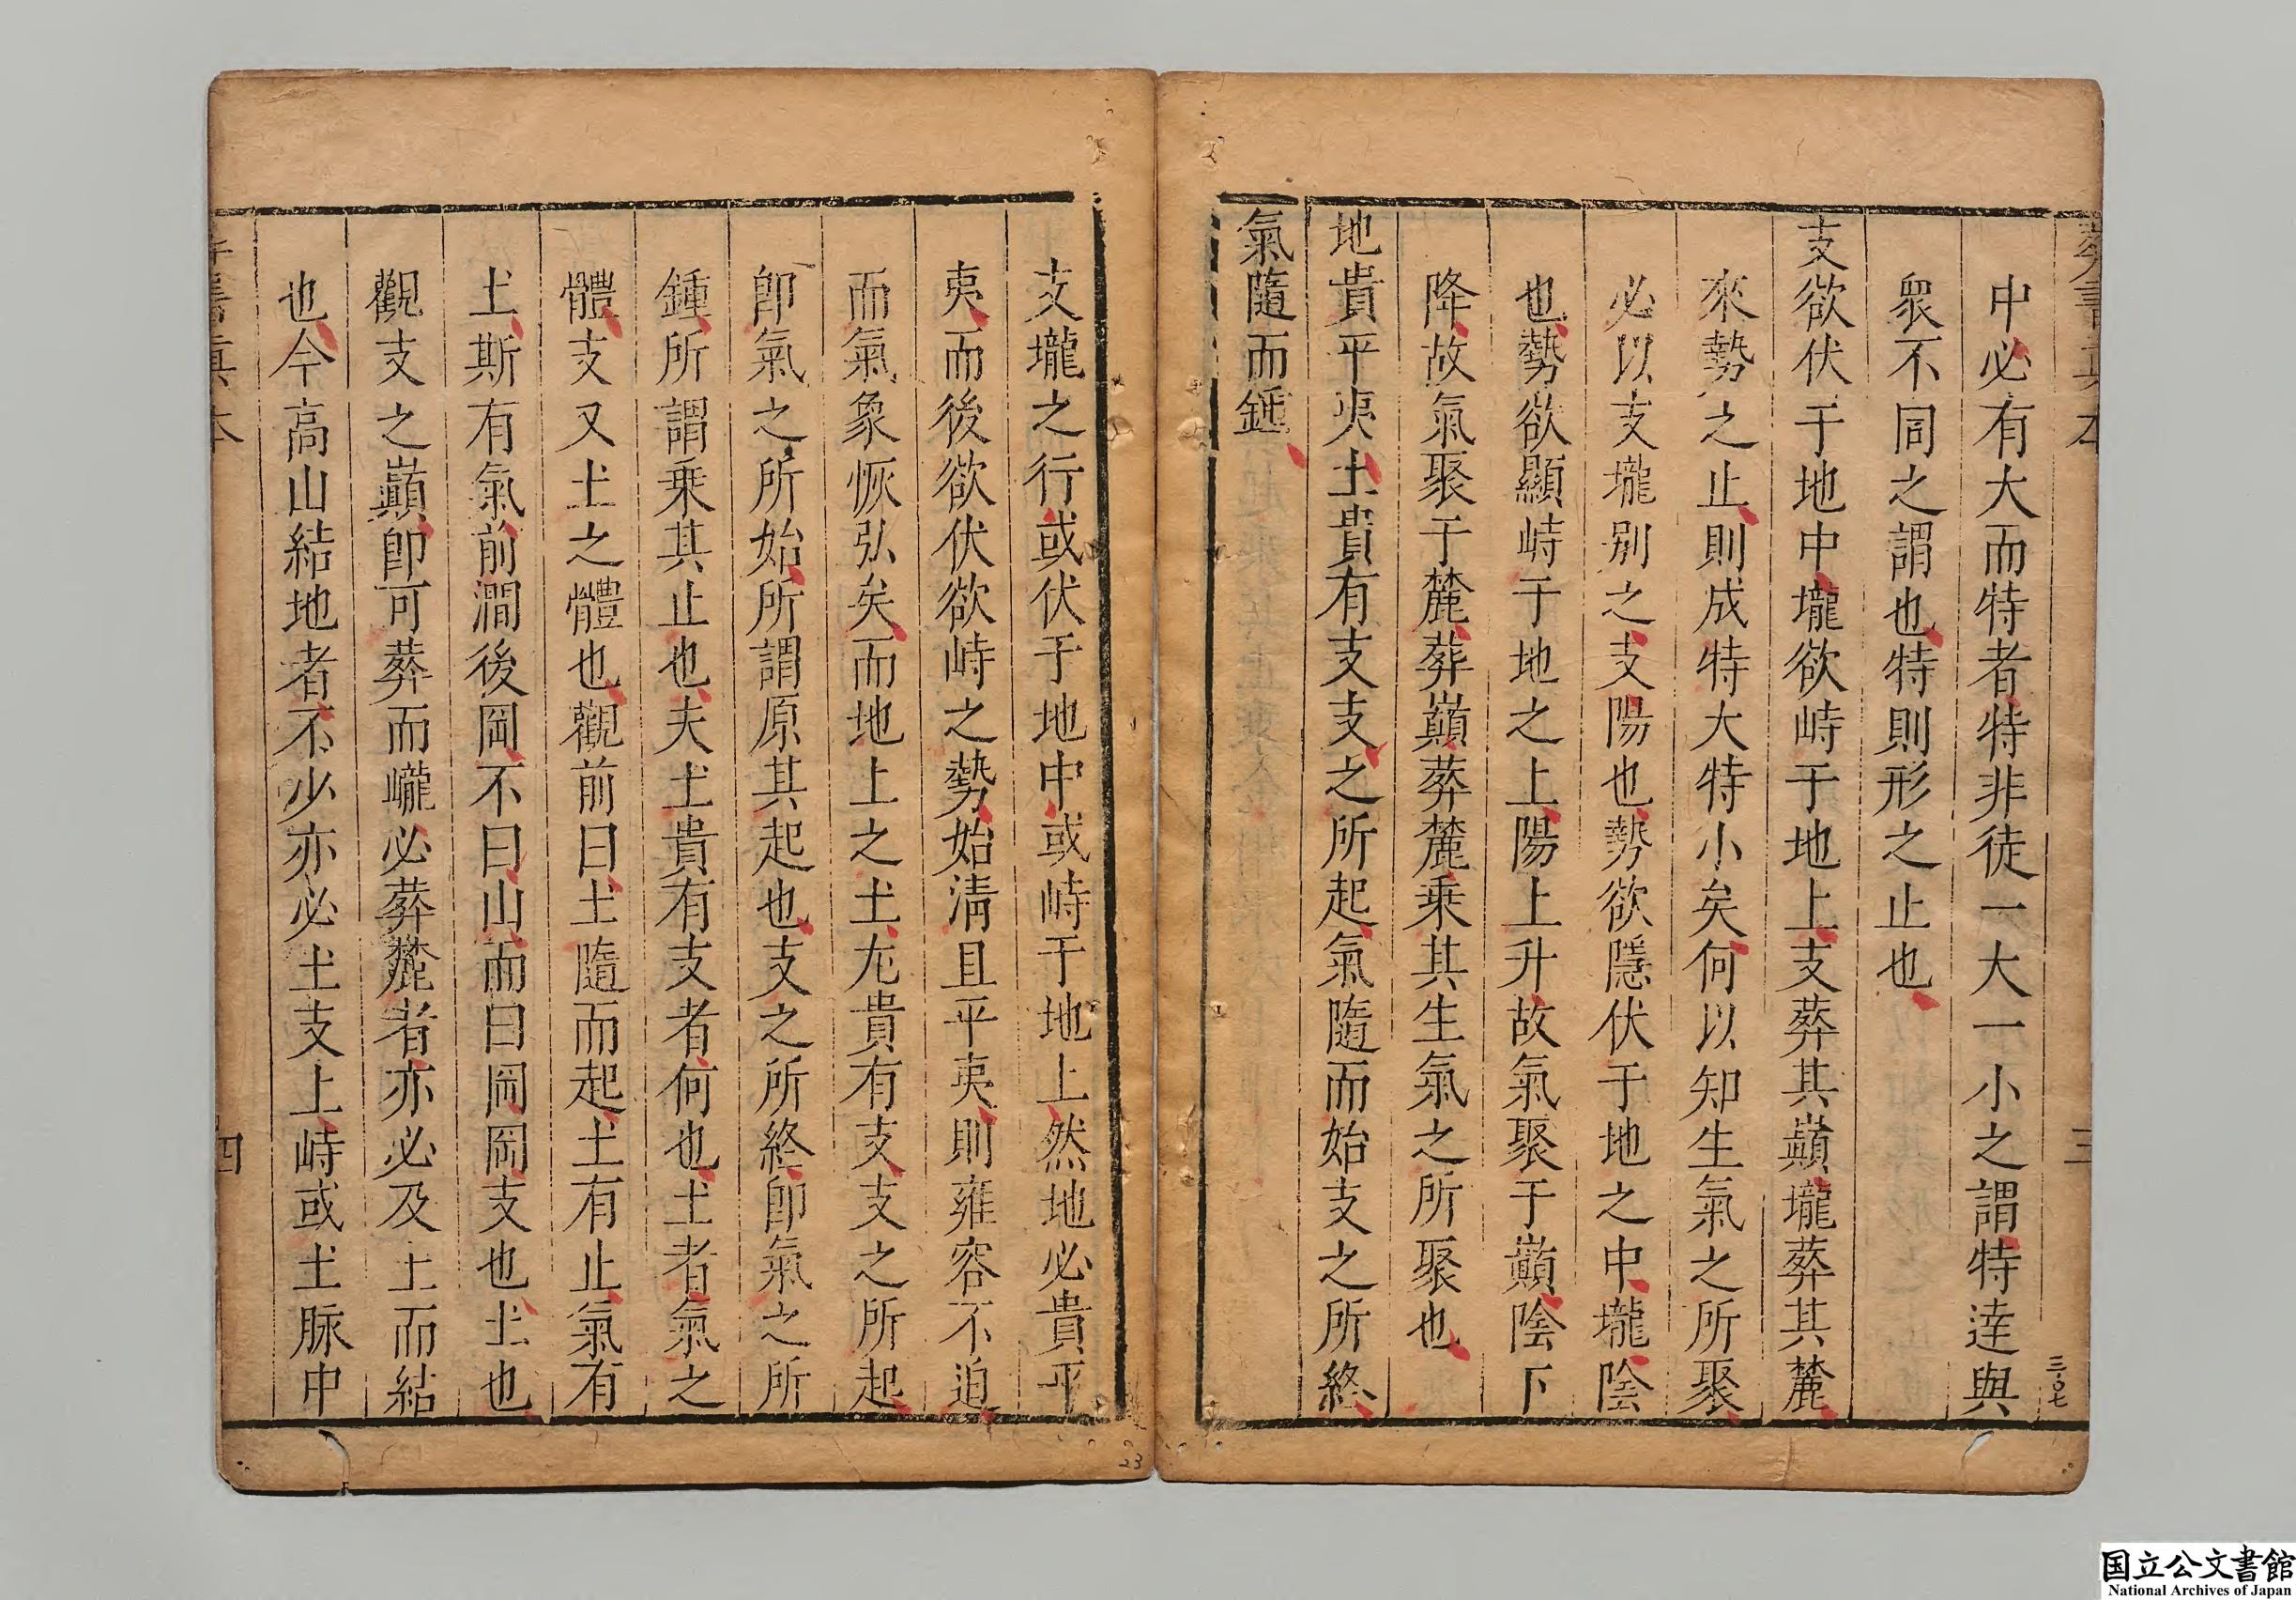 中必有大而特者特非徒一大一小之謂特達與
衆不同之謂也特則形之止也
支欲伏于地中壠欲峙于地上支葬其巔壠葬其麓
來勢之止則成特大特小矣何以知生氣之所聚
必以支壠別之支陽也勢欲隱伏于地之中壠陰
也勢欲顯峙于地之上陽上升故氣聚于巔陰下
降故氣聚于麓葬巔葬麓乘其生氣之所聚也
地貴平夷土貴有支支之所起氣隨而始支之所終
氣隨而鍾
三
三〇七
支壠之行或伏于地中或峙于地上然地必貴平
夷而後欲伏欲峙之勢始清且平夷則雍容不迫
而氣象恢弘矣而地上之土尤貴有支支之所起
卽氣之所始所謂原其起也支之所終卽氣之所
鍾所謂乘其止也夫土貴有支者何也土者氣之
體支又土之體也觀前曰土隨而起土有止氣有
土斯有氣前澗後岡不曰山而曰岡岡支也土也
觀支之巔卽可葬而巄必葬麓者亦必及土而結
也今高山結地者不少亦必土支上峙或土脉中
葬書眞本
四
23
国立公文書館
National Archives of Japan